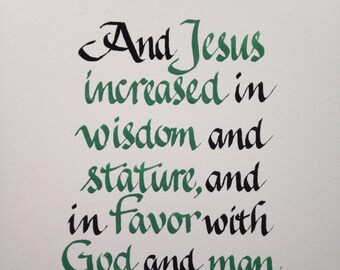 And Jesus
increased in
wisdom and
stature, and
in Favor with
God and man